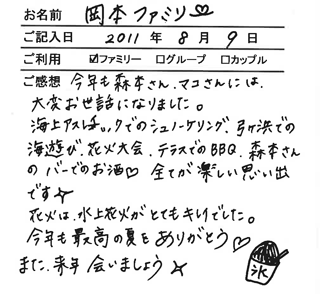 お名前 岡本ファミリー♡
ご記入日 2011年 8月 9日
ご利用 ☑ファミリー □グループ □カップル
ご感想 今年も森本さん、マコさんには、
大変お世話になりました。
海上アスレチックでのシュノーケリング、弓ヶ浜での
海遊び、花火大会、テラスでのBBQ、森本さん
のバーでのお酒♡ 全てが楽しい思い出
です☆
花火は、水上花火がとてもキレイでした。
今年も最高の夏をありがとう♡
また、来年会いましょう☆
氷